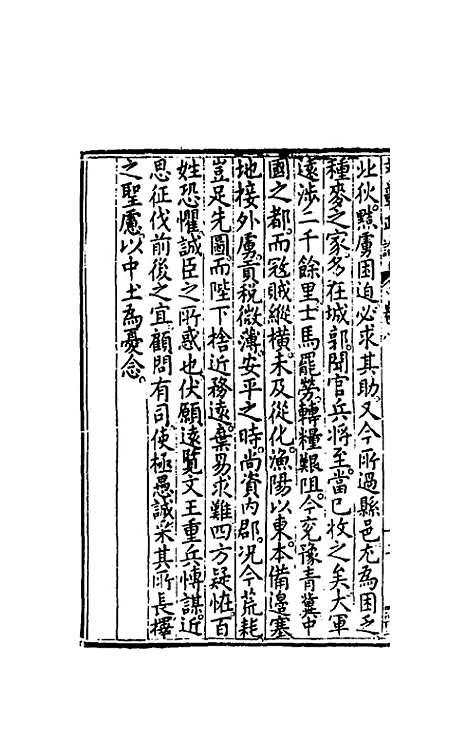 北狄黠虜困迫必求其助又今所過縣邑尤為困乏
種麥之家多在城郭聞官兵將至當已收之矣大軍
遠涉二千餘里士馬罷勞轉糧艱阻今兗豫青冀中
國之都而寇賊縱橫未及從化漁陽以東本備邊塞
地接外虜貢稅微薄安平之時尚資内郡況今荒耗
豈足先圖而陛下捨近務遠棄易求難四方疑恠百
姓恐懼誠臣之所惑也伏願遠覽文王重兵博謀近
思征伐前後之宜顧問有司使極愚誠采其所長擇
之聖慮以中土為憂念